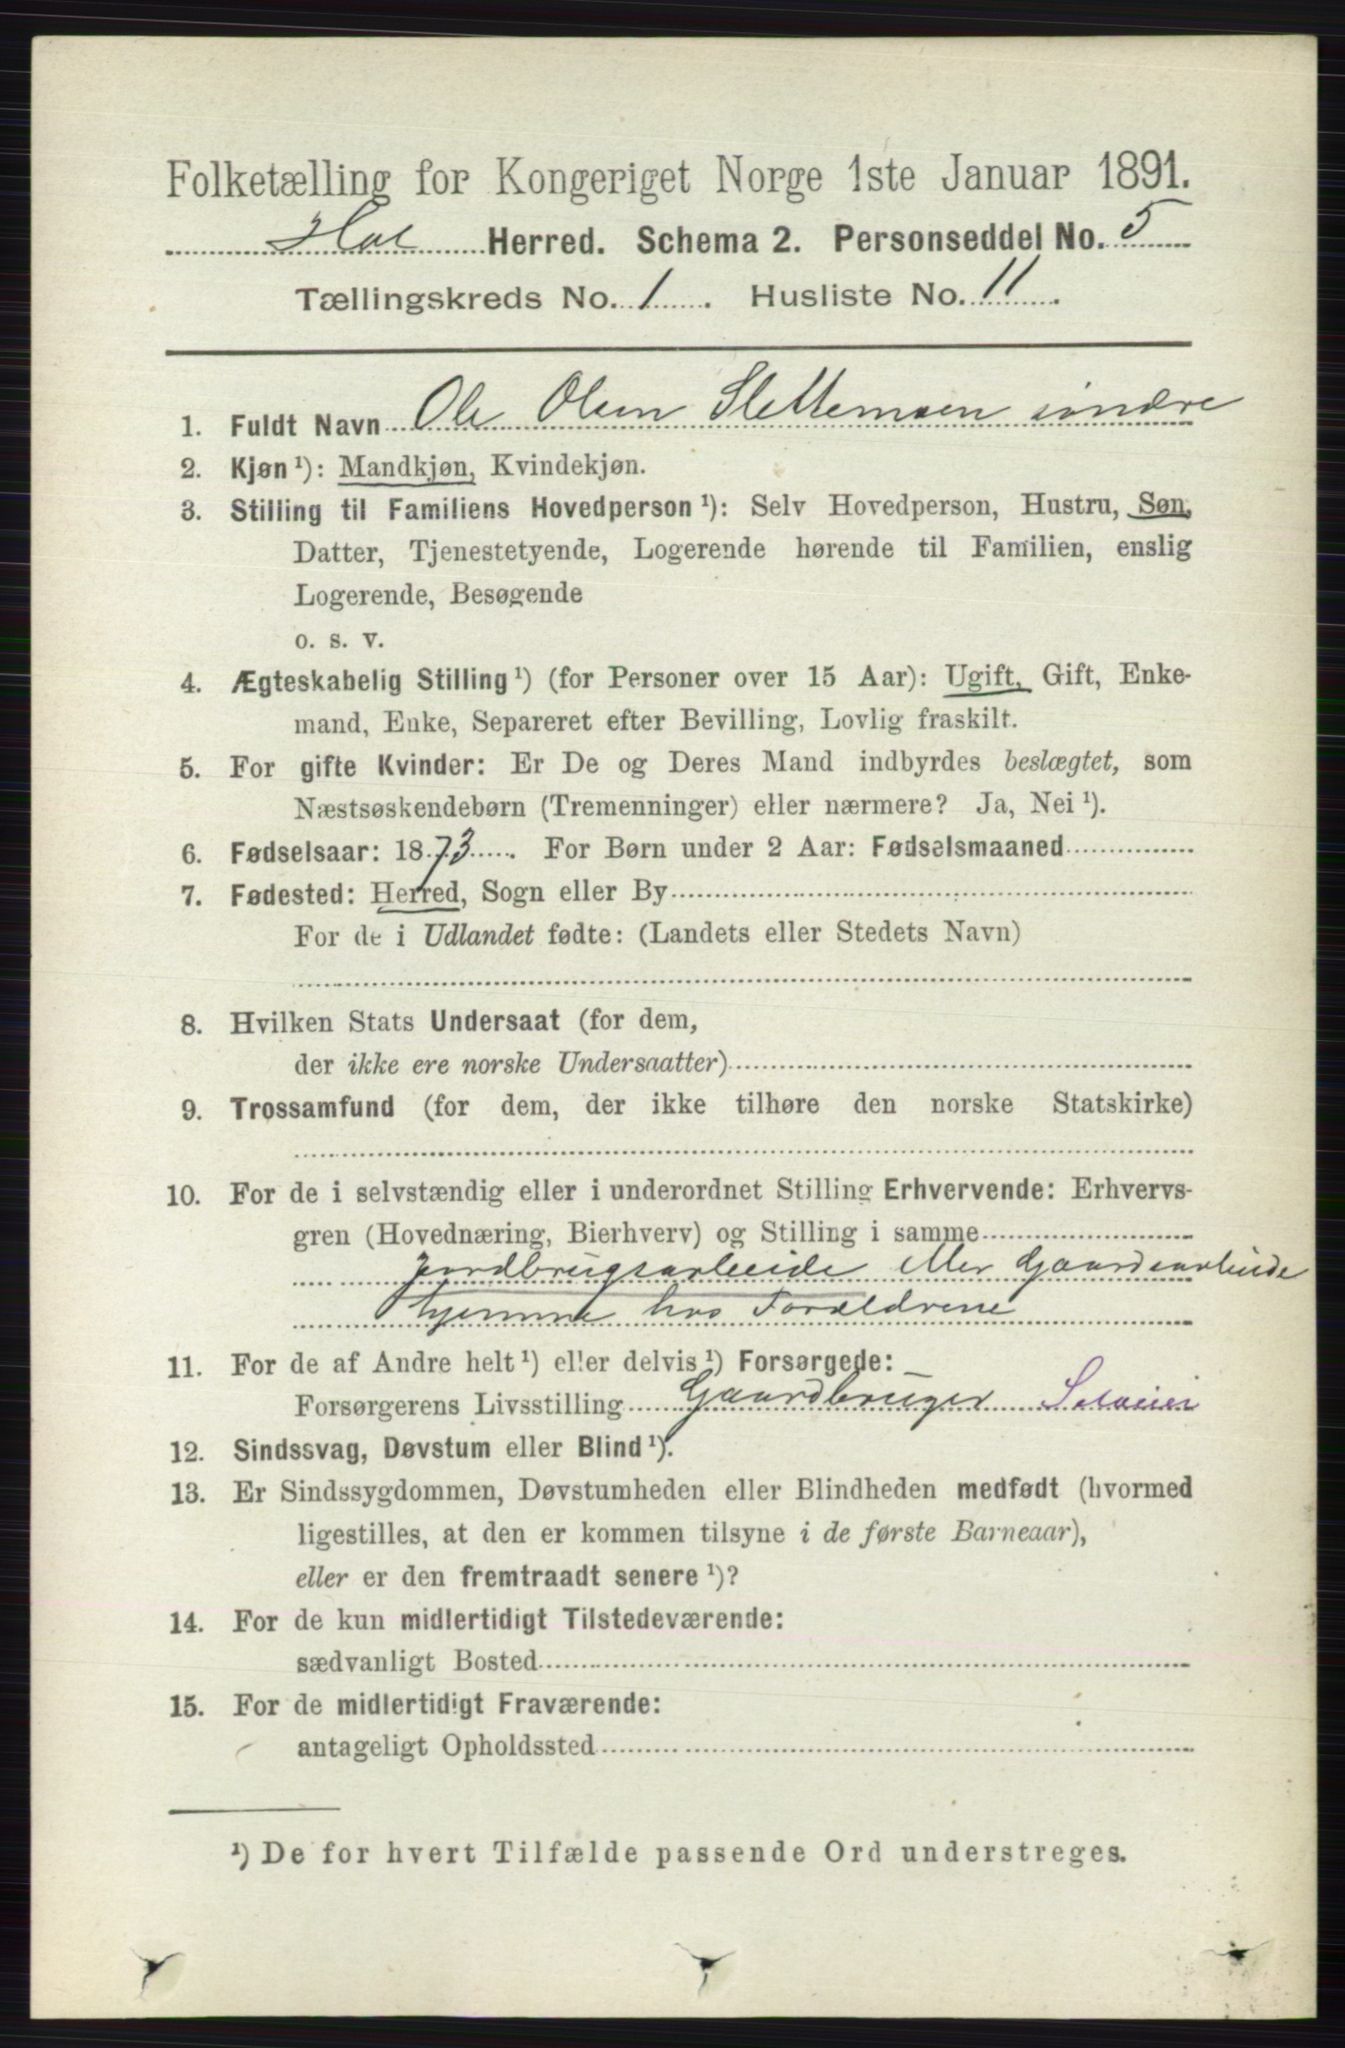 Folketælling for Kongeriget Norge 1ste Januar 1891.
Hol Herred. Schema 2. Personseddel No. 5
Tællingskreds No. 1. Husliste No. 11.
1. Fuldt Navn Ole Olsen Slettemoen søndre
2. Kjøn ¹): Mandkjøn, Kvindekjøn.
3. Stilling til Familiens Hovedperson ¹): Selv Hovedperson, Hustru, Søn,
Datter, Tjenestetyende, Logerende hørende til Familien, enslig
Logerende, Besøgende
o. s. v.
4. Ægteskabelig Stilling ¹) (for Personer over 15 Aar): Ugift, Gift, Enke-
mand, Enke, Separeret efter Bevilling, Lovlig fraskilt.
5. For gifte Kvinder: Er De og Deres Mand indbyrdes beslægtet, som
Næstsøskendebørn (Tremenninger) eller nærmere? Ja, Nei ¹).
6. Fødselsaar: 1873. For Børn under 2 Aar: Fødselsmaaned
7. Fødested: Herred, Sogn eller By
For de i Udlandet fødte: (Landets eller Stedets Navn)
8. Hvilken Stats Undersaat (for dem,
der ikke ere norske Undersaatter)
9. Trossamfund (for dem, der ikke tilhøre den norske Statskirke)
10. For de i selvstændig eller i underordnet Stilling Erhvervende: Erhvervs-
gren (Hovednæring, Bierhverv) og Stilling i samme
Jordbrugsarbeide eller Gaardsarbeide
hjemme hos Forældrene
11. For de af Andre helt ¹) eller delvis ¹) Forsørgede:
Forsørgerens Livsstilling Gaardbruger Selveier
12. Sindssvag, Døvstum eller Blind ¹).
13. Er Sindssygdommen, Døvstumheden eller Blindheden medfødt (hvormed
ligestilles, at den er kommen tilsyne i de første Barneaar),
eller er den fremtraadt senere ¹)?
14. For de kun midlertidigt Tilstedeværende:
sædvanligt Bosted
15. For de midlertidigt Fraværende:
antageligt Opholdssted
¹) De for hvert Tilfælde passende Ord understreges.